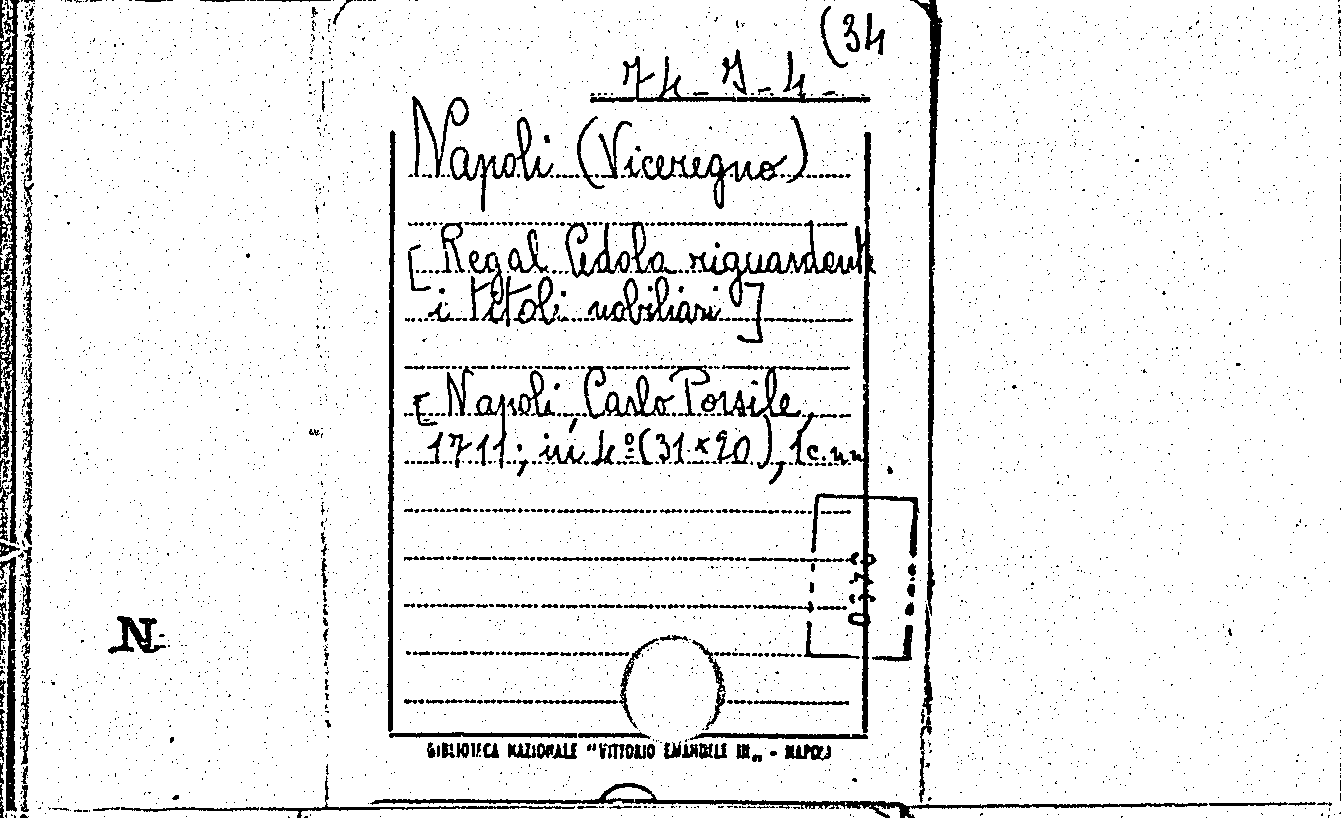 (34
74-J-4-
Napoli (Viceregno)
[Regal Cedola riguardante
i titoli nobiliari]
[Napoli, Carlo Porsile,
1711; in 4º (31×20), 1c.nn
0370
N
BIBLIOTECA NAZIONALE "VITTORIO EMANUELE III„ - NAPOLI